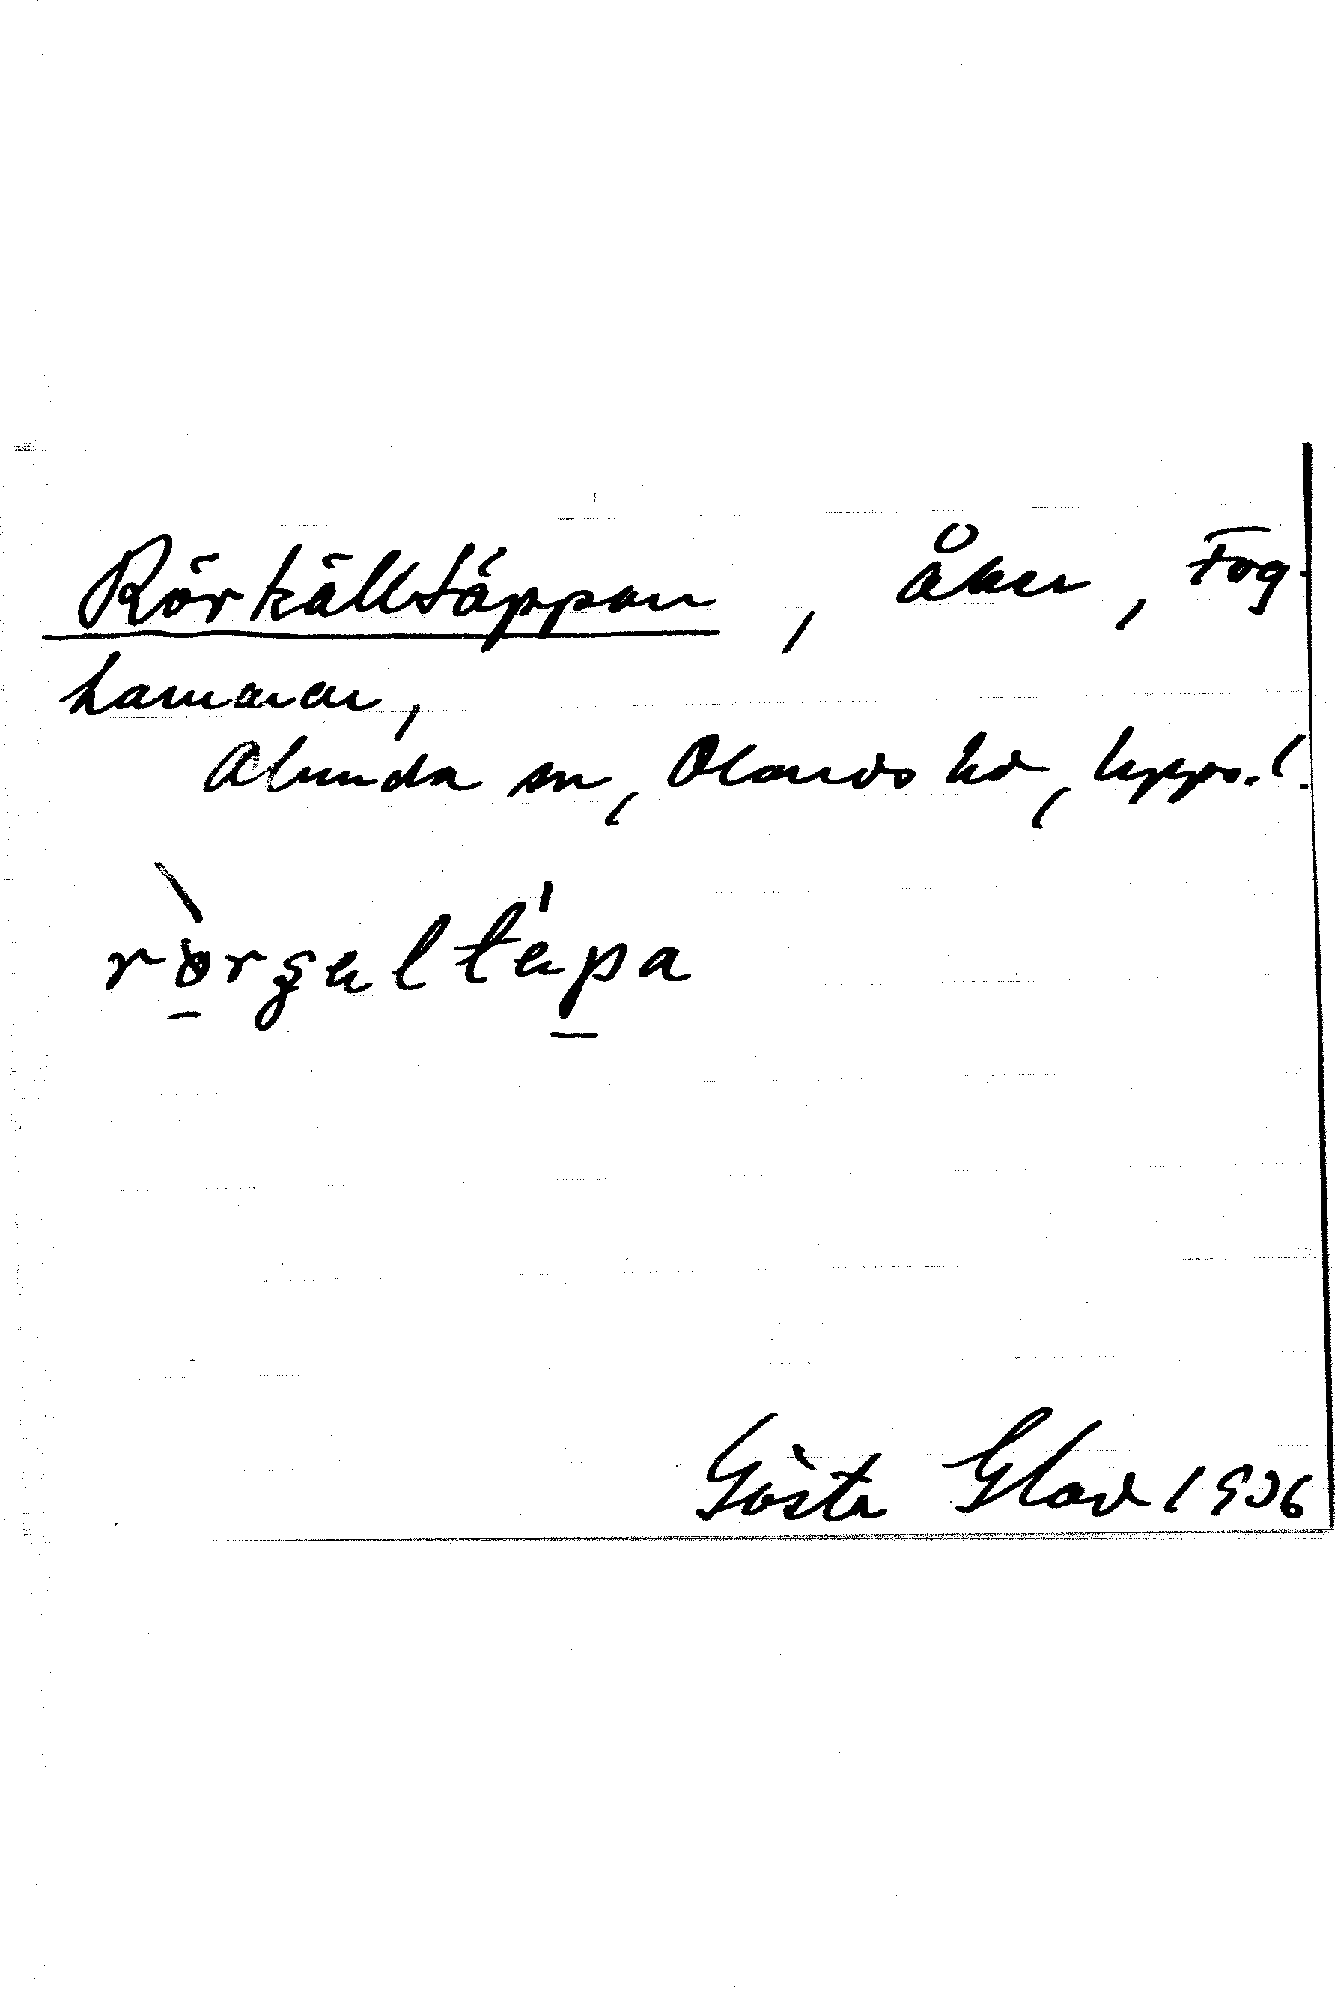 Rörkälltäppan, åker, Fog-
hamrarar,
Alunda sn, Olands hd, Upps. l.
rörgältäpa
Gösta Glad 1936